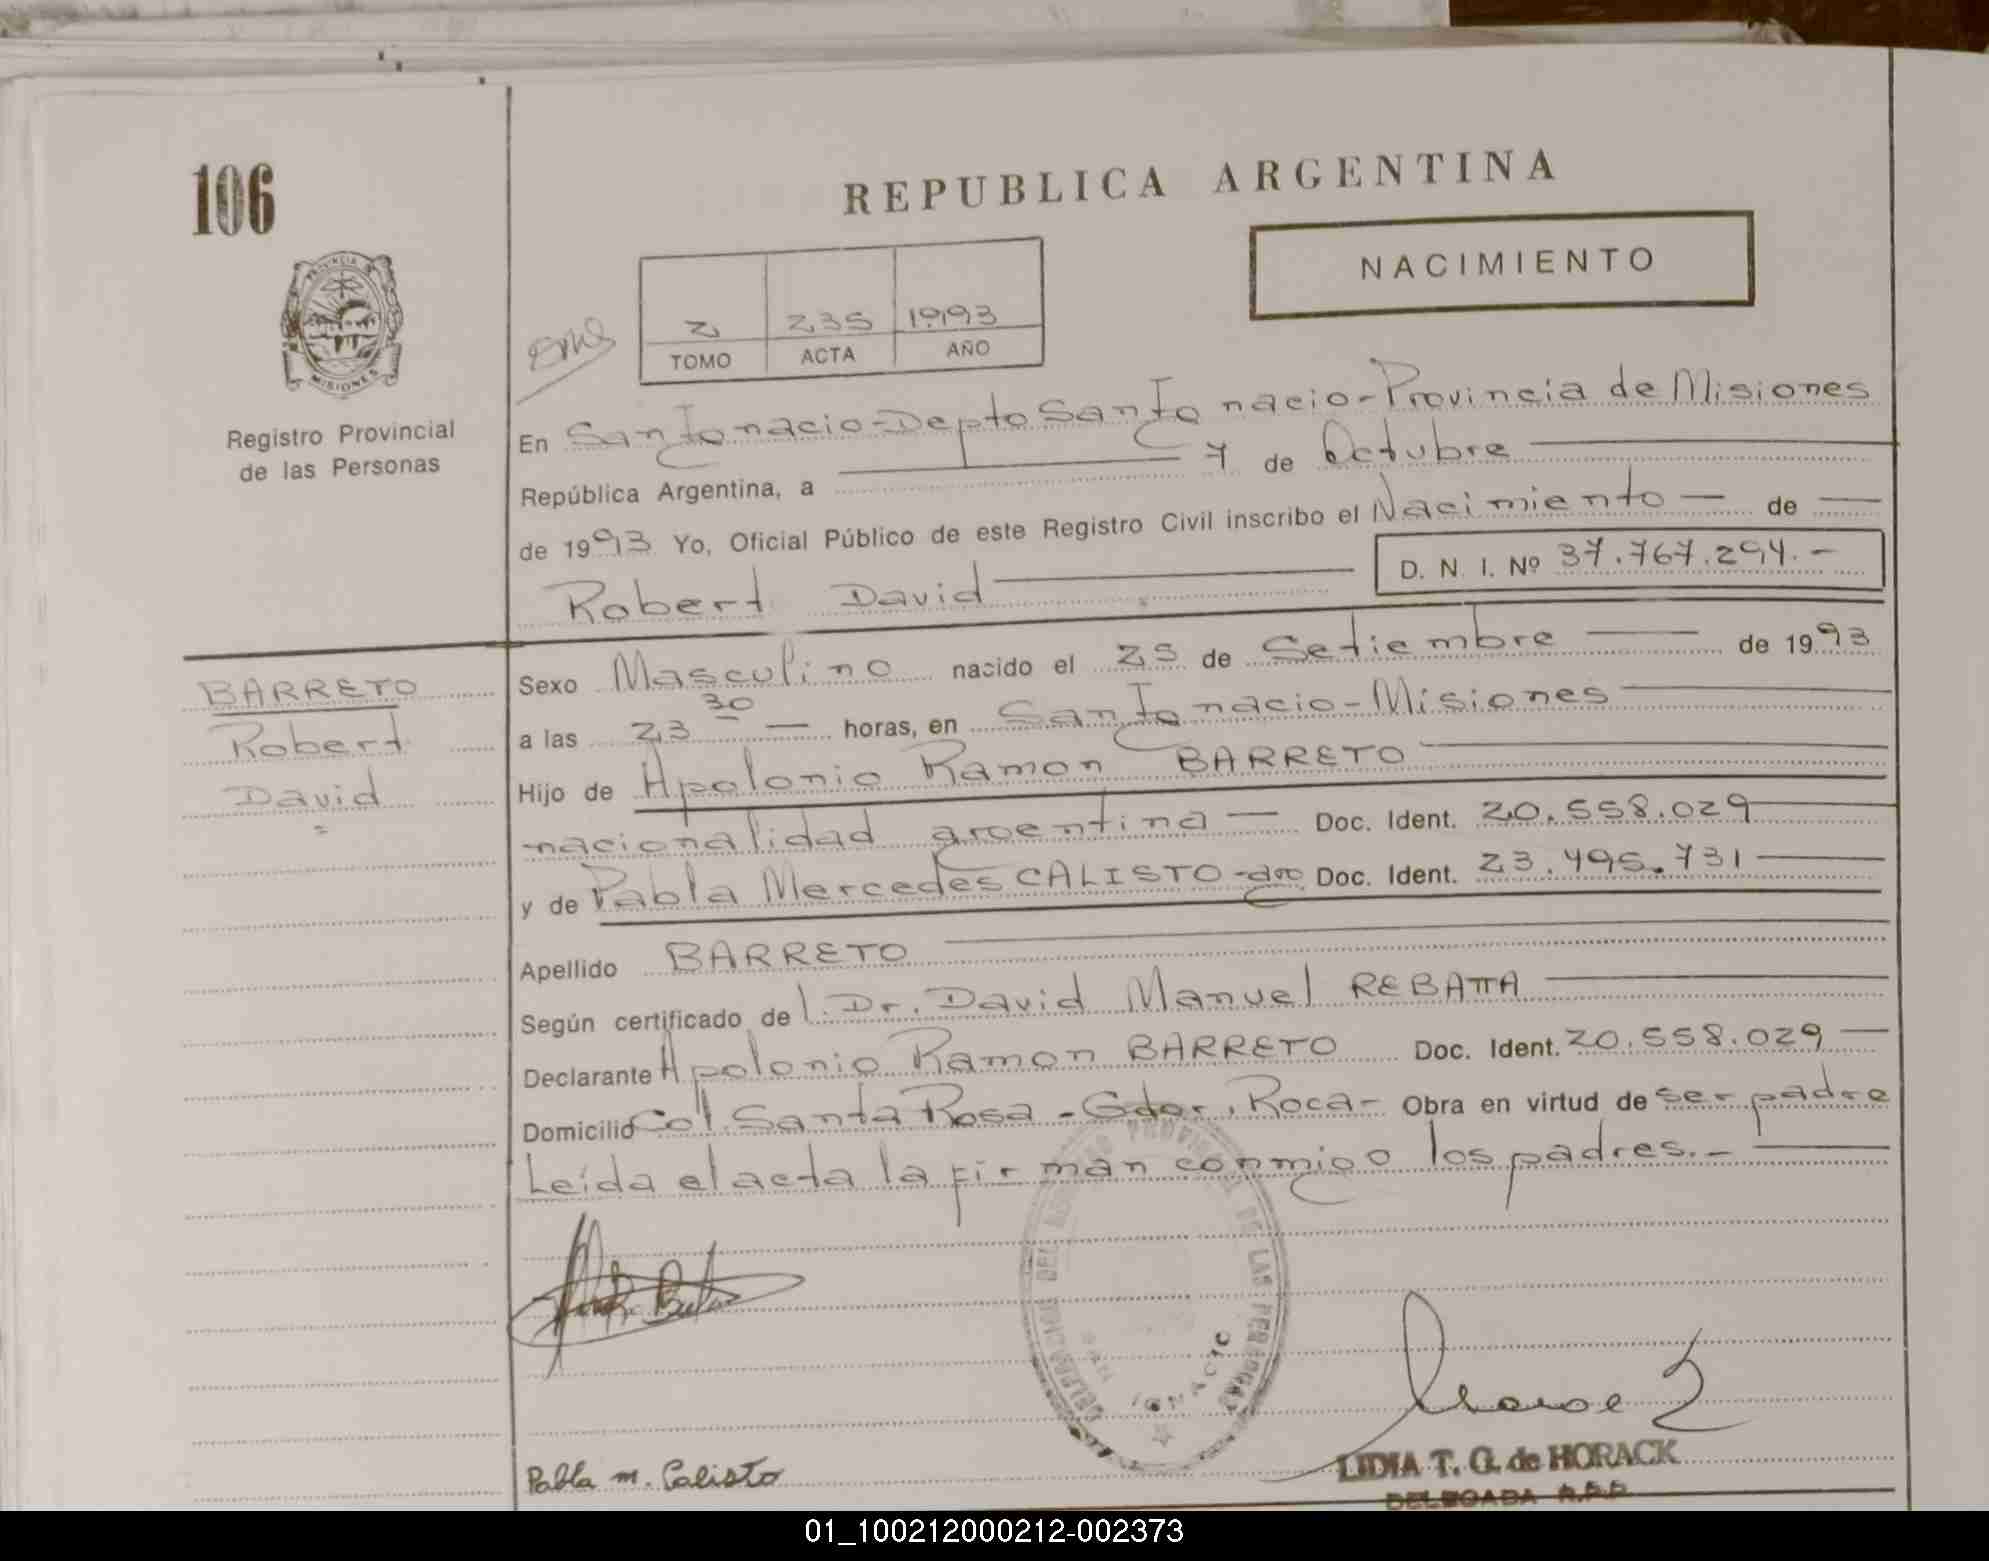 106
REPUBLICA ARGENTINA
NACIMIENTO
PROVINCIA DE
MISIONES
Registro Provincial
de las Personas
2 235 1993
TOMO ACTA AÑO
En San Ignacio - Depto San Ignacio - Provincia de Misiones
República Argentina, a 7 de Octubre
de 1993 Yo, Oficial Público de este Registro Civil inscribo el Nacimiento — de —
Robert David
D. N. I. Nº 37.767.294.-
BARRETO
Robert
David
Sexo Masculino nacido el 25 de Setiembre de 1993
a las 23 30 — horas, en San Ignacio - Misiones
Hijo de Apolonio Ramon BARRETO
nacionalidad argentina — Doc. Ident. 20.558.029
y de Pabla Mercedes CALISTO - arg Doc. Ident. 23.495.731
Apellido BARRETO
Según certificado de l. Dr. David Manuel REBATTA
Declarante Apolonio Ramon BARRETO Doc. Ident. 20.558.029
Domicilio Col. Santa Rosa - Gdor. Roca - Obra en virtud de ser padre
Leída el acta la firman conmigo los padres.-
DELEGACION DEL REGISTRO PROVINCIAL DE LAS PERSONAS
SAN IGNACIO
Pabla M. Calisto
LIDIA T. G. de HORACK
DELEGADA R.P.P.
01_100212000212-002373